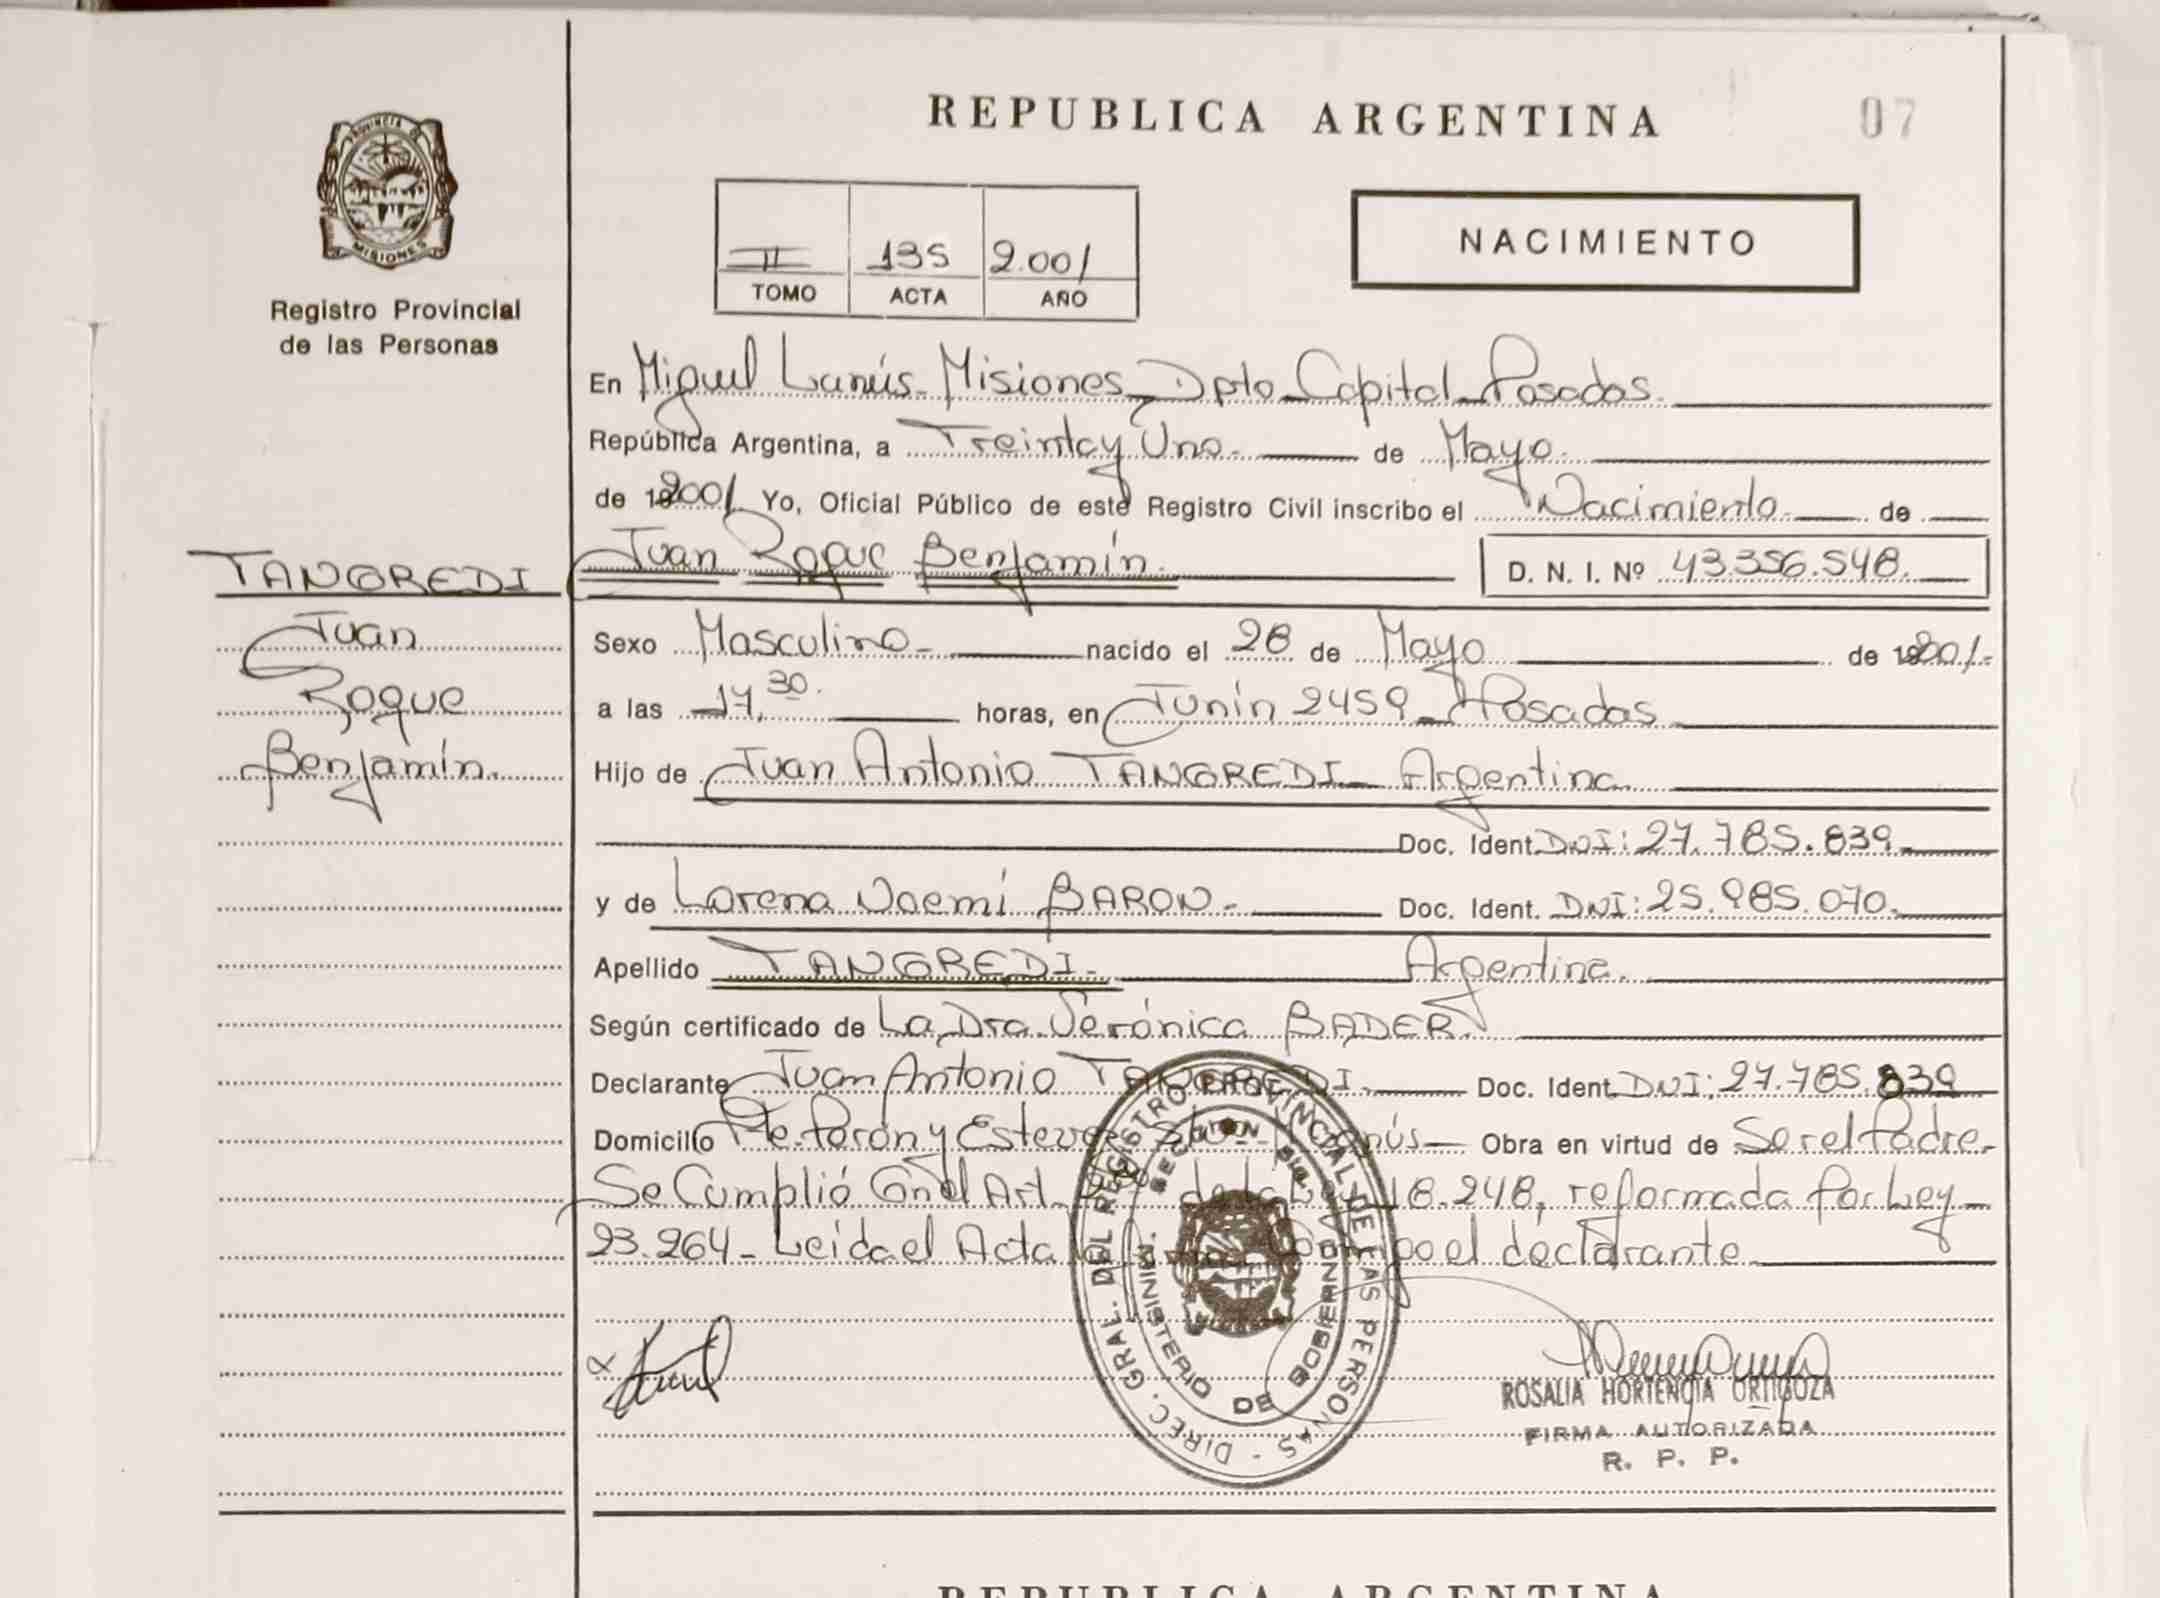 REPUBLICA ARGENTINA
07
PROVINCIA DE
MISIONES
Registro Provincial
de las Personas
II 135 2.001
TOMO ACTA AÑO
NACIMIENTO
En Miguel Lanús - Misiones - Dpto Capital - Posadas.
República Argentina, a Treinta y Uno. de Mayo.
de 2001. Yo, Oficial Público de este Registro Civil inscribo el Nacimiento de
TANGREDI
Juan
Roque
Benjamín.
Juan Roque Benjamín. D. N. I. Nº 43.356.548.
Sexo Masculino nacido el 28 de Mayo de 2001.-
a las 17,30. horas, en Junín 2459 - Posadas
Hijo de Juan Antonio TANGREDI - Argentina.
Doc. Ident. DNI: 27.785.839.
y de Lorena Noemí BARON. Doc. Ident. DNI: 25.985.070.
Apellido TANGREDI. Argentina.
Según certificado de La Dra. Verónica BADER.
Declarante Juan Antonio TANGREDI. Doc. Ident. DNI: 27.785.839
Domicilio Pte. Perón y Estevez Lanús Obra en virtud de Ser el Padre.
Se Cumplió Con el Art. de la Ley 18.248, reformada Por Ley
23.264 - Leída el Acta el declarante
DIREC. GRAL. DEL REGISTRO PROVINCIAL DE LAS PERSONAS
MINISTERIO DE GOBIERNO
ROSALIA HORTENCIA ORTIGOZA
FIRMA AUTORIZADA
R. P. P.
REPUBLICA ARGENTINA